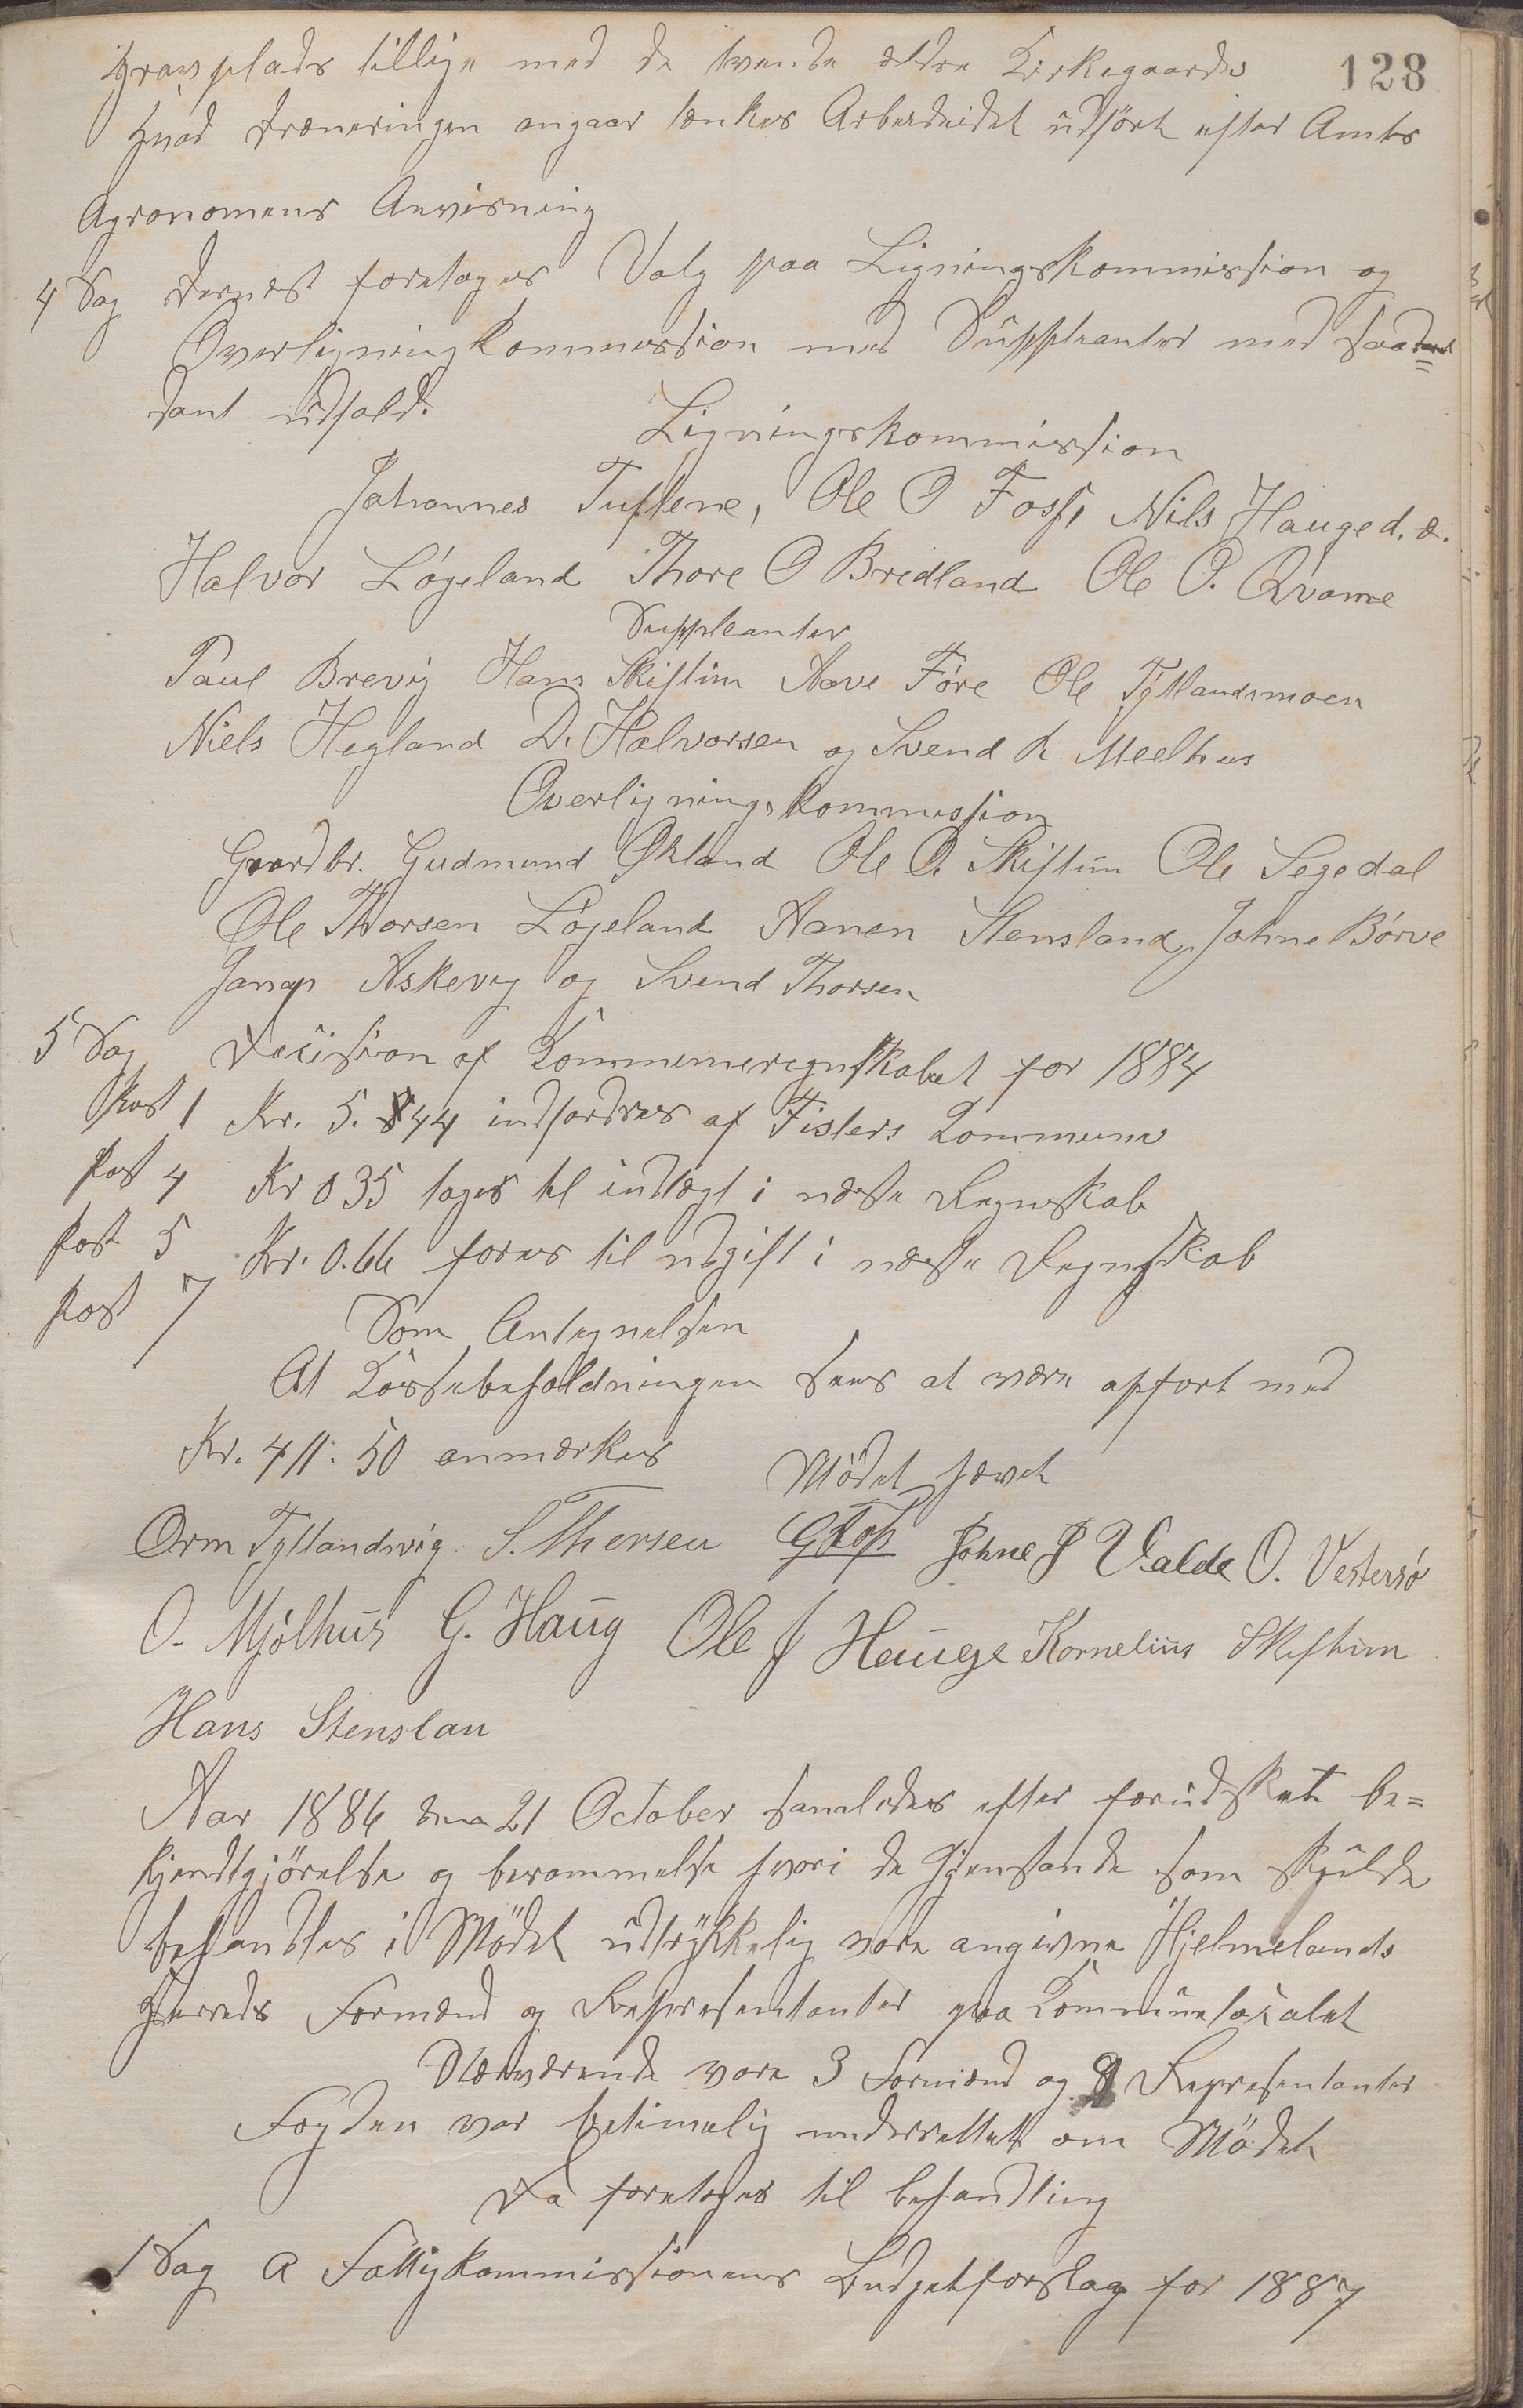 128
Gravplads tillige med de tvende ældre Kirkegaarde
Hvad Dræneringen angaar tænkes Arbeidet udført efter Amts
Agronomens Anvisning
4 Sag Dernæst foretoges Valg paa Ligningskommission og
Overligningkommission med Suppleanter med saa-
dant udfald.
Ligningskommission
Johannes Tuftene, Ole O Foss, Nils Hauge d. æ.
Halvor Løgeland Thore O Bredland Ole O. Qvame
Suppleanter
Paul Brevig Hans Skiftun Aave Føre Ole Tytlandsmoen
Niels Hegland D. Halvorsen og Svend R Meelhus
Overligningskommission
Gaardbr. Gudmund Økland Ole O. Skiftun Ole Segedal
Ole Thorsen Løgeland Aanen Stensland, Johne Børve
Askevig og Svend Thorsen
5 Sag Decision af Kommuneregnskabet for 1884
Post 1 Kr. 5.844 indfordres af Fisters Kommune
Post 4 Kr 0 35 tages til indtægt i næste Regnskab
Post 5 Kr. 0.66 føres til udgift i næste Regnskab
Post 7 Som Antegnelsen
At Kassebeholdningen sees at være opført med
Kr. 411.50 anmærkes
Mødet hævet
Orm Tytlandsvig S. Thorsen G Foss Johne J Valde O. Vestersø
O. Mjølhus G. Haug Ole J Hauge Kornelius Skiftun
Hans Stenslan
Aar 1886 den 21 October samledes efter forudskeet be=
kjendtgjørelse og berammelse hvori de Gjenstande som skulde
behandles i Mødet udtrykkelig vare angivne Hjelmelands
Herreds Formænd og Repræsentanter paa Kommunelocalet
Nærværende vare 3 Formænd og 8 Repræsentanter
Fogden var betimelig underrettet om Mødet
Da foretoges til behandling
1 Sag a Fattigkommissionens Budgetforslag for 1887